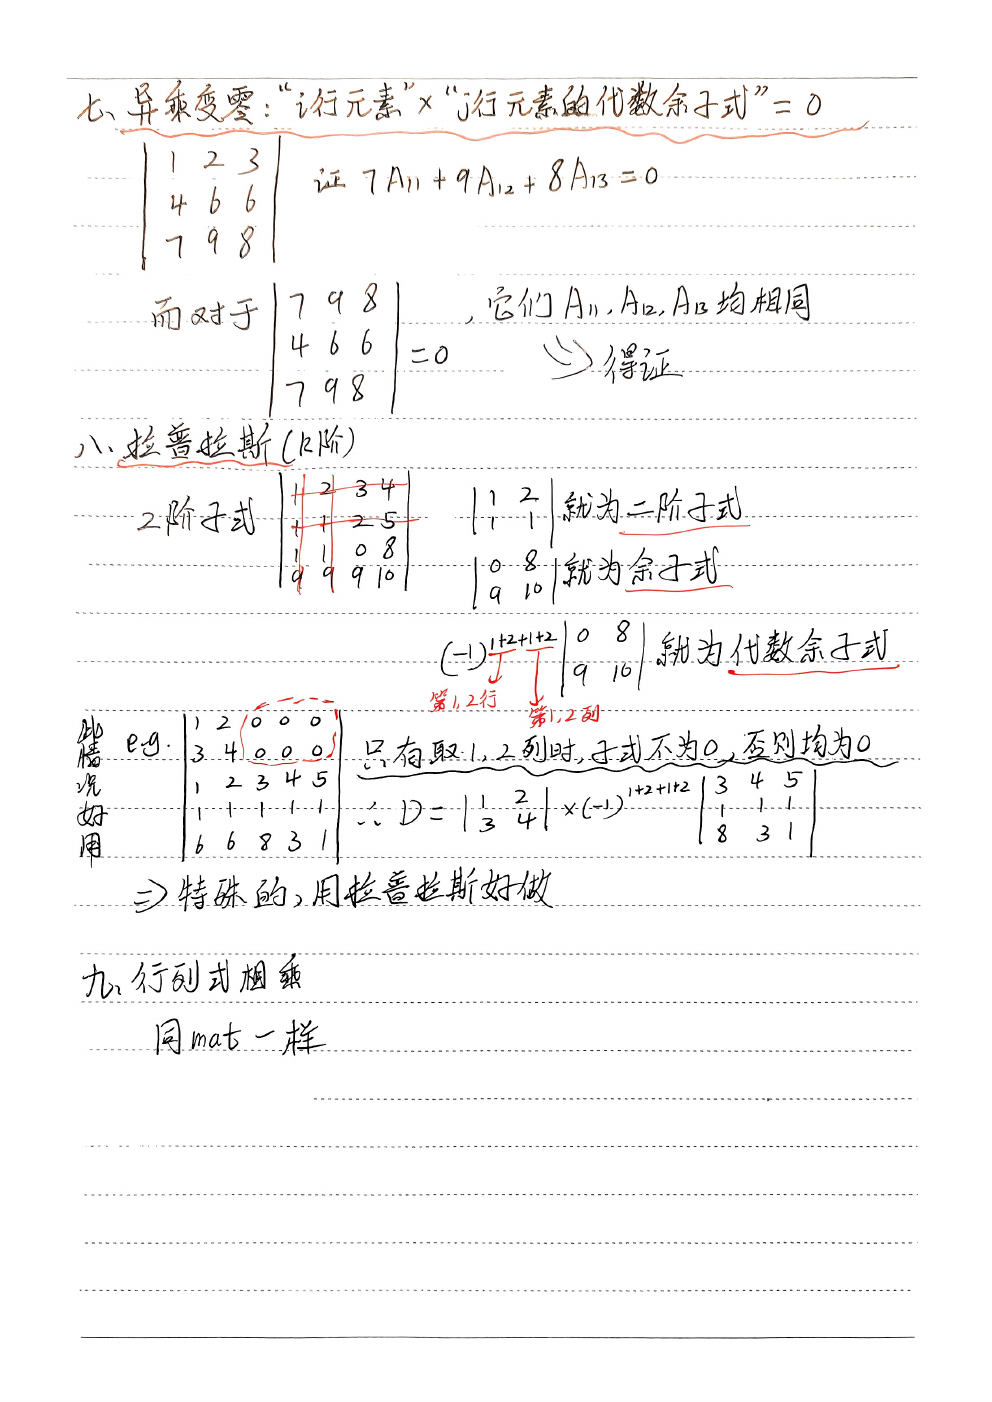 七、异乘变零:“i行元素”×“j行元素的代数余子式”=0
1 2 3
4 6 6
7 9 8
证 7A₁₁+9A₁₂+8A₁₃=0
而对于
7 9 8
4 6 6
7 9 8
=0
,它们A₁₁,A₁₂,A₁₃均相同
⇒得证
八、拉普拉斯(k阶)
2阶子式
1 2 3 4
1 1 2 5
1 1 0 8
9 9 9 10
1 2
1 1
就为二阶子式
0 8
9 10
就为余子式
(-1)^{1+2+1+2}
0 8
9 10
就为代数余子式
第1,2行
第1,2列
此情况好用
e.g.
1 2 0 0 0
3 4 0 0 0
1 2 3 4 5
1 1 1 1 1
6 6 8 3 1
只有取1,2列时,子式不为0,否则均为0
∴ D=
1 2
3 4
×(-1)^{1+2+1+2}
3 4 5
1 1 1
8 3 1
⇒特殊的,用拉普拉斯好做
九、行列式相乘
同mat一样